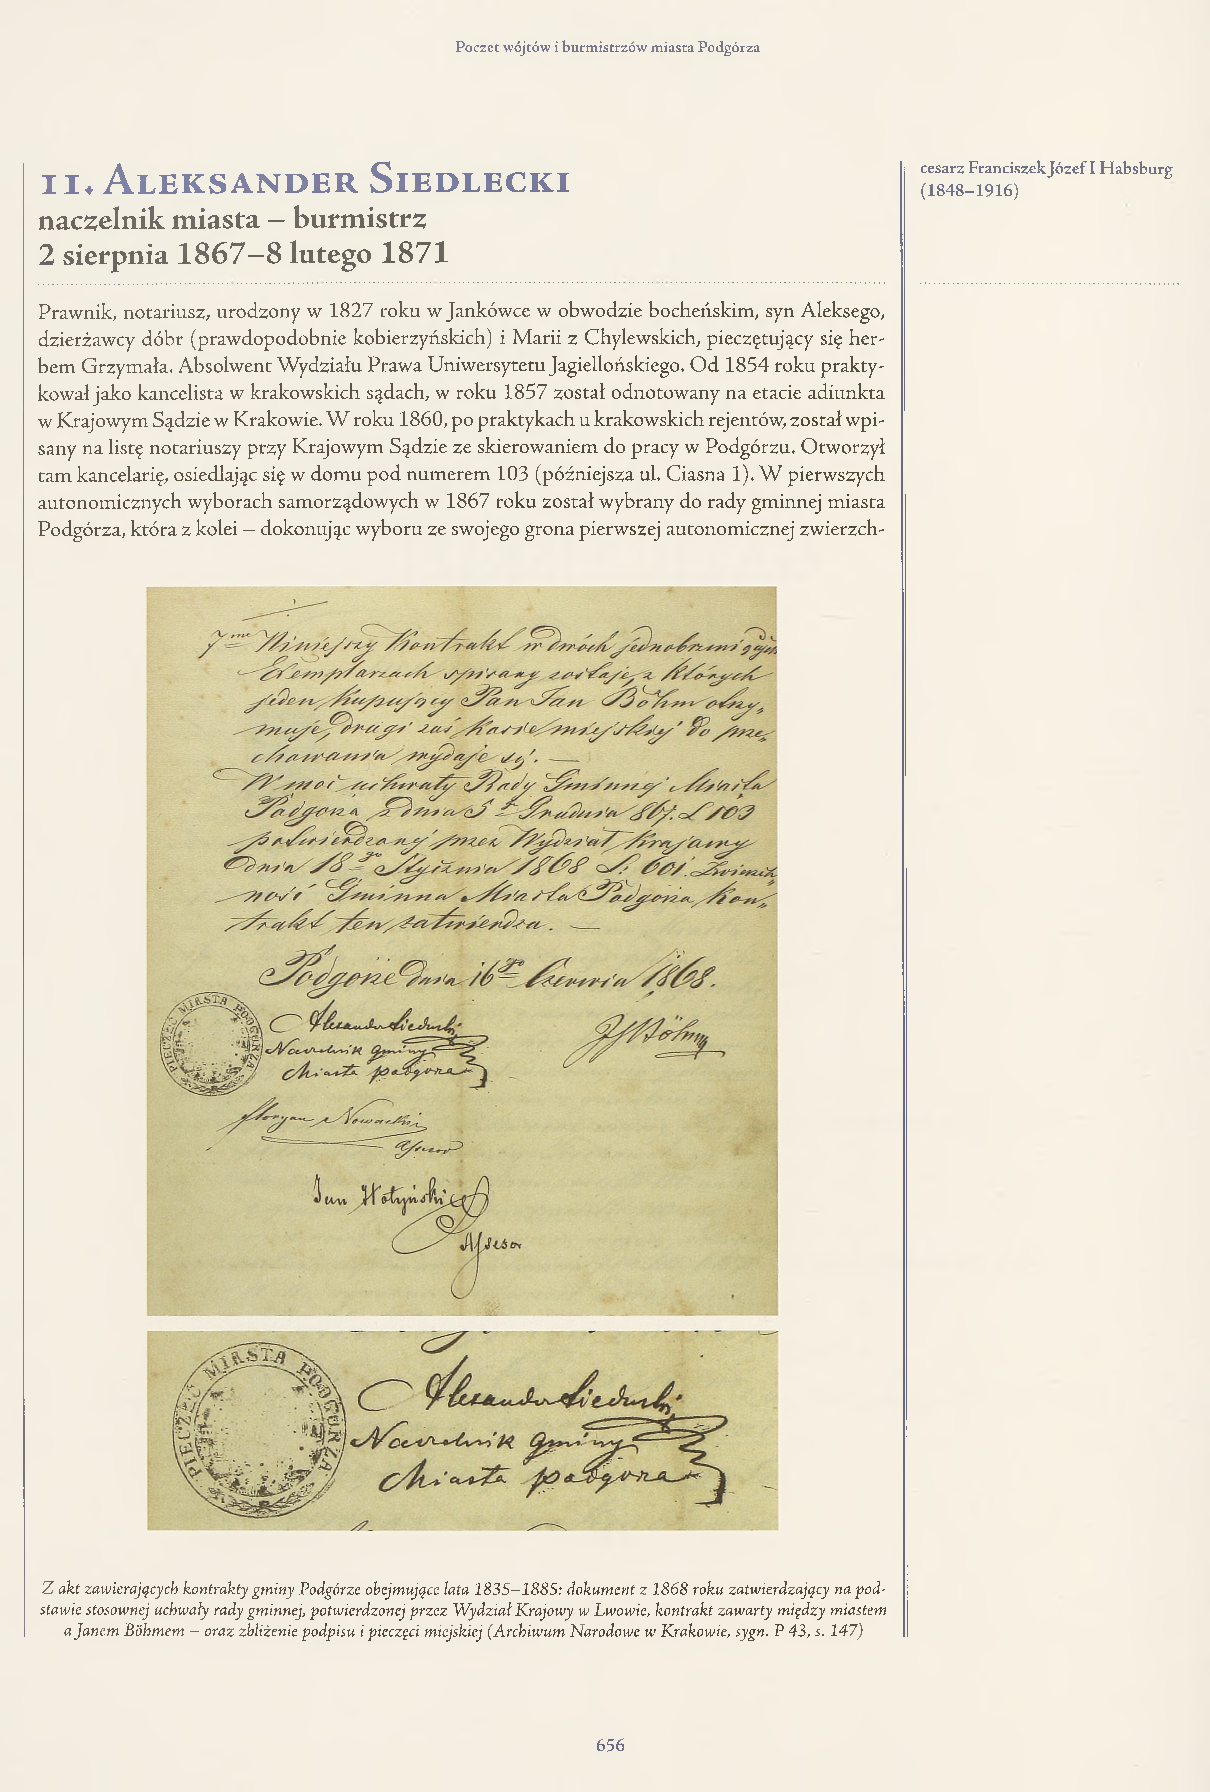 Poczet wójtów i burmistrzów miasta Podgórza
11. Aleksander Siedlecki
naczelnik miasta – burmistrz
2 sierpnia 1867–8 lutego 1871
cesarz Franciszek Józef I Habsburg
(1848–1916)
Prawnik, notariusz, urodzony w 1827 roku w Jankówce w obwodzie bocheńskim, syn Aleksego,
dzierżawcy dóbr (prawdopodobnie kobierzyńskich) i Marii z Chylewskich, pieczętujący się her-
bem Grzymała. Absolwent Wydziału Prawa Uniwersytetu Jagiellońskiego. Od 1854 roku prakty-
kował jako kancelista w krakowskich sądach, w roku 1857 został odnotowany na etacie adiunkta
w Krajowym Sądzie w Krakowie. W roku 1860, po praktykach u krakowskich rejentów, został wpi-
sany na listę notariuszy przy Krajowym Sądzie ze skierowaniem do pracy w Podgórzu. Otworzył
tam kancelarię, osiedlając się w domu pod numerem 103 (późniejsza ul. Ciasna 1). W pierwszych
autonomicznych wyborach samorządowych w 1867 roku został wybrany do rady gminnej miasta
Podgórza, która z kolei – dokonując wyboru ze swojego grona pierwszej autonomicznej zwierzch-
7me Niniejszy Kontrakt w dwóch jednobrzmiących
Exemplarzach spisany zostaje, z których
jeden kupujący Pan Jan Böhm otrzy-
muje, drugi zaś Kasie miejskiej do prze-
chowania wydaje się. —
W moc uchwały Rady Gminnej Miasta
Podgorza z dnia 5 Grudnia 867. L 103
potwierdzonej przez Wydział Krajowy
dnia 18go Stycznia 1868 L: 601. Zwierzch-
ność Gminna Miasta Podgorza Kon-
trakt ten zatwierdza. —
Podgorze dnia 16go Czerwca 1868.
PIECZĘĆ MIASTA PODGÓRZA
Alexander Siedlecki
Naczelnik Gminy
Miasta podgorza
Böhm
Floryan Nowacki
Asesor
Jan Wołyński
Assesor
PIECZĘĆ MIASTA PODGÓRZA
Alexander Siedlecki
Naczelnik Gminy
Miasta podgorza
Z akt zawierających kontrakty gminy Podgórze obejmujące lata 1835–1885: dokument z 1868 roku zatwierdzający na pod-
stawie stosownej uchwały rady gminnej, potwierdzonej przez Wydział Krajowy w Lwowie, kontrakt zawarty między miastem
a Janem Böhmem – oraz zbliżenie podpisu i pieczęci miejskiej (Archiwum Narodowe w Krakowie, sygn. P 43, s. 147)
656